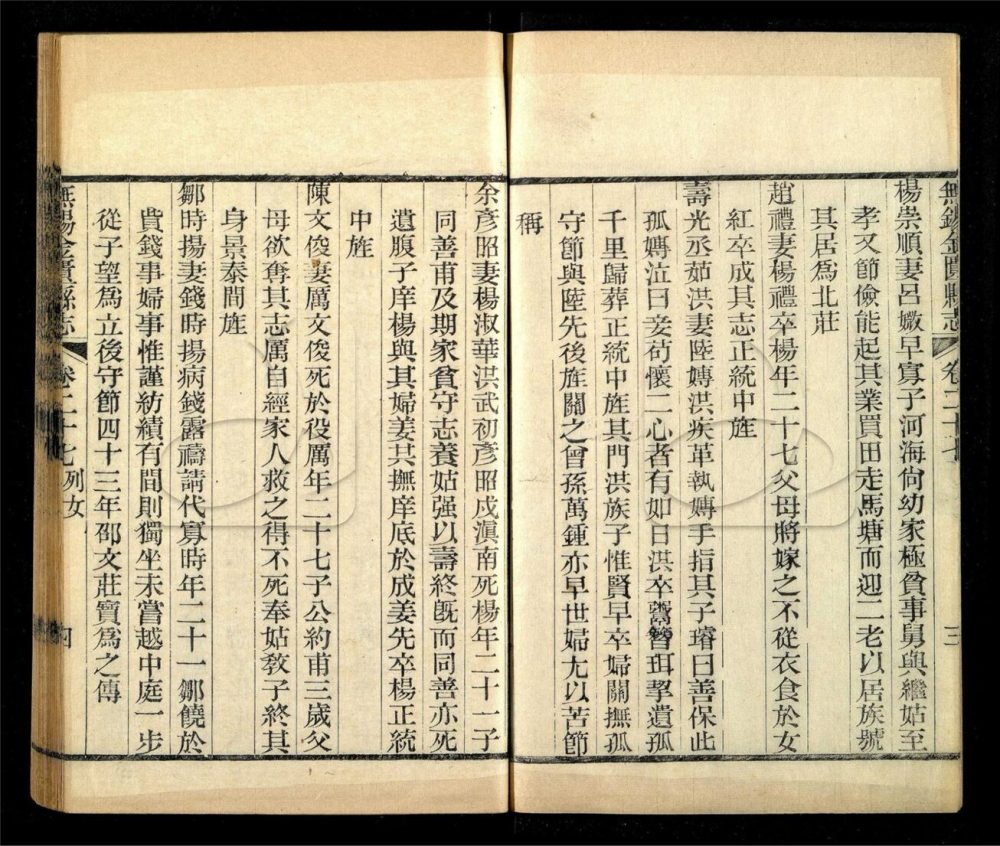 無錫金匱縣志 卷二十七 三
楊崇順妻呂媺早寡子河海尙幼家極貧事舅與繼姑至
孝又節儉能起其業買田走馬塘而迎二老以居族號
其居爲北莊
趙禮妻楊禮卒楊年二十七父母將嫁之不從衣食於女
紅卒成其志正統中旌
壽光丞茹洪妻陸娉洪疾革執娉手指其子璿曰善保此
孤娉泣曰妾苟懷二心者有如日洪卒鬻簪珥挈遺孤
千里歸葬正統中旌其門洪族子惟賢早卒婦關撫孤
守節與陸先後旌關之曾孫萬鍾亦早世婦尤以苦節
稱
余彥昭妻楊淑華洪武初彥昭戍滇南死楊年二十一子
同善甫及期家貧守志養姑强以壽終旣而同善亦死
遺腹子庠楊與其婦姜共撫庠底於成姜先卒楊正統
中旌
陳文俊妻厲文俊死於役厲年二十七子公約甫三歲父
母欲奪其志厲自經家人救之得不死奉姑敎子終其
身景泰間旌
鄒時揚妻錢時揚病錢露禱請代寡時年二十一鄒饒於
貲錢事婦事惟謹紡績有間則獨坐未嘗越中庭一步
從子望爲立後守節四十三年邵文莊寶爲之傳
無錫金匱縣志 卷二十七 列女 四